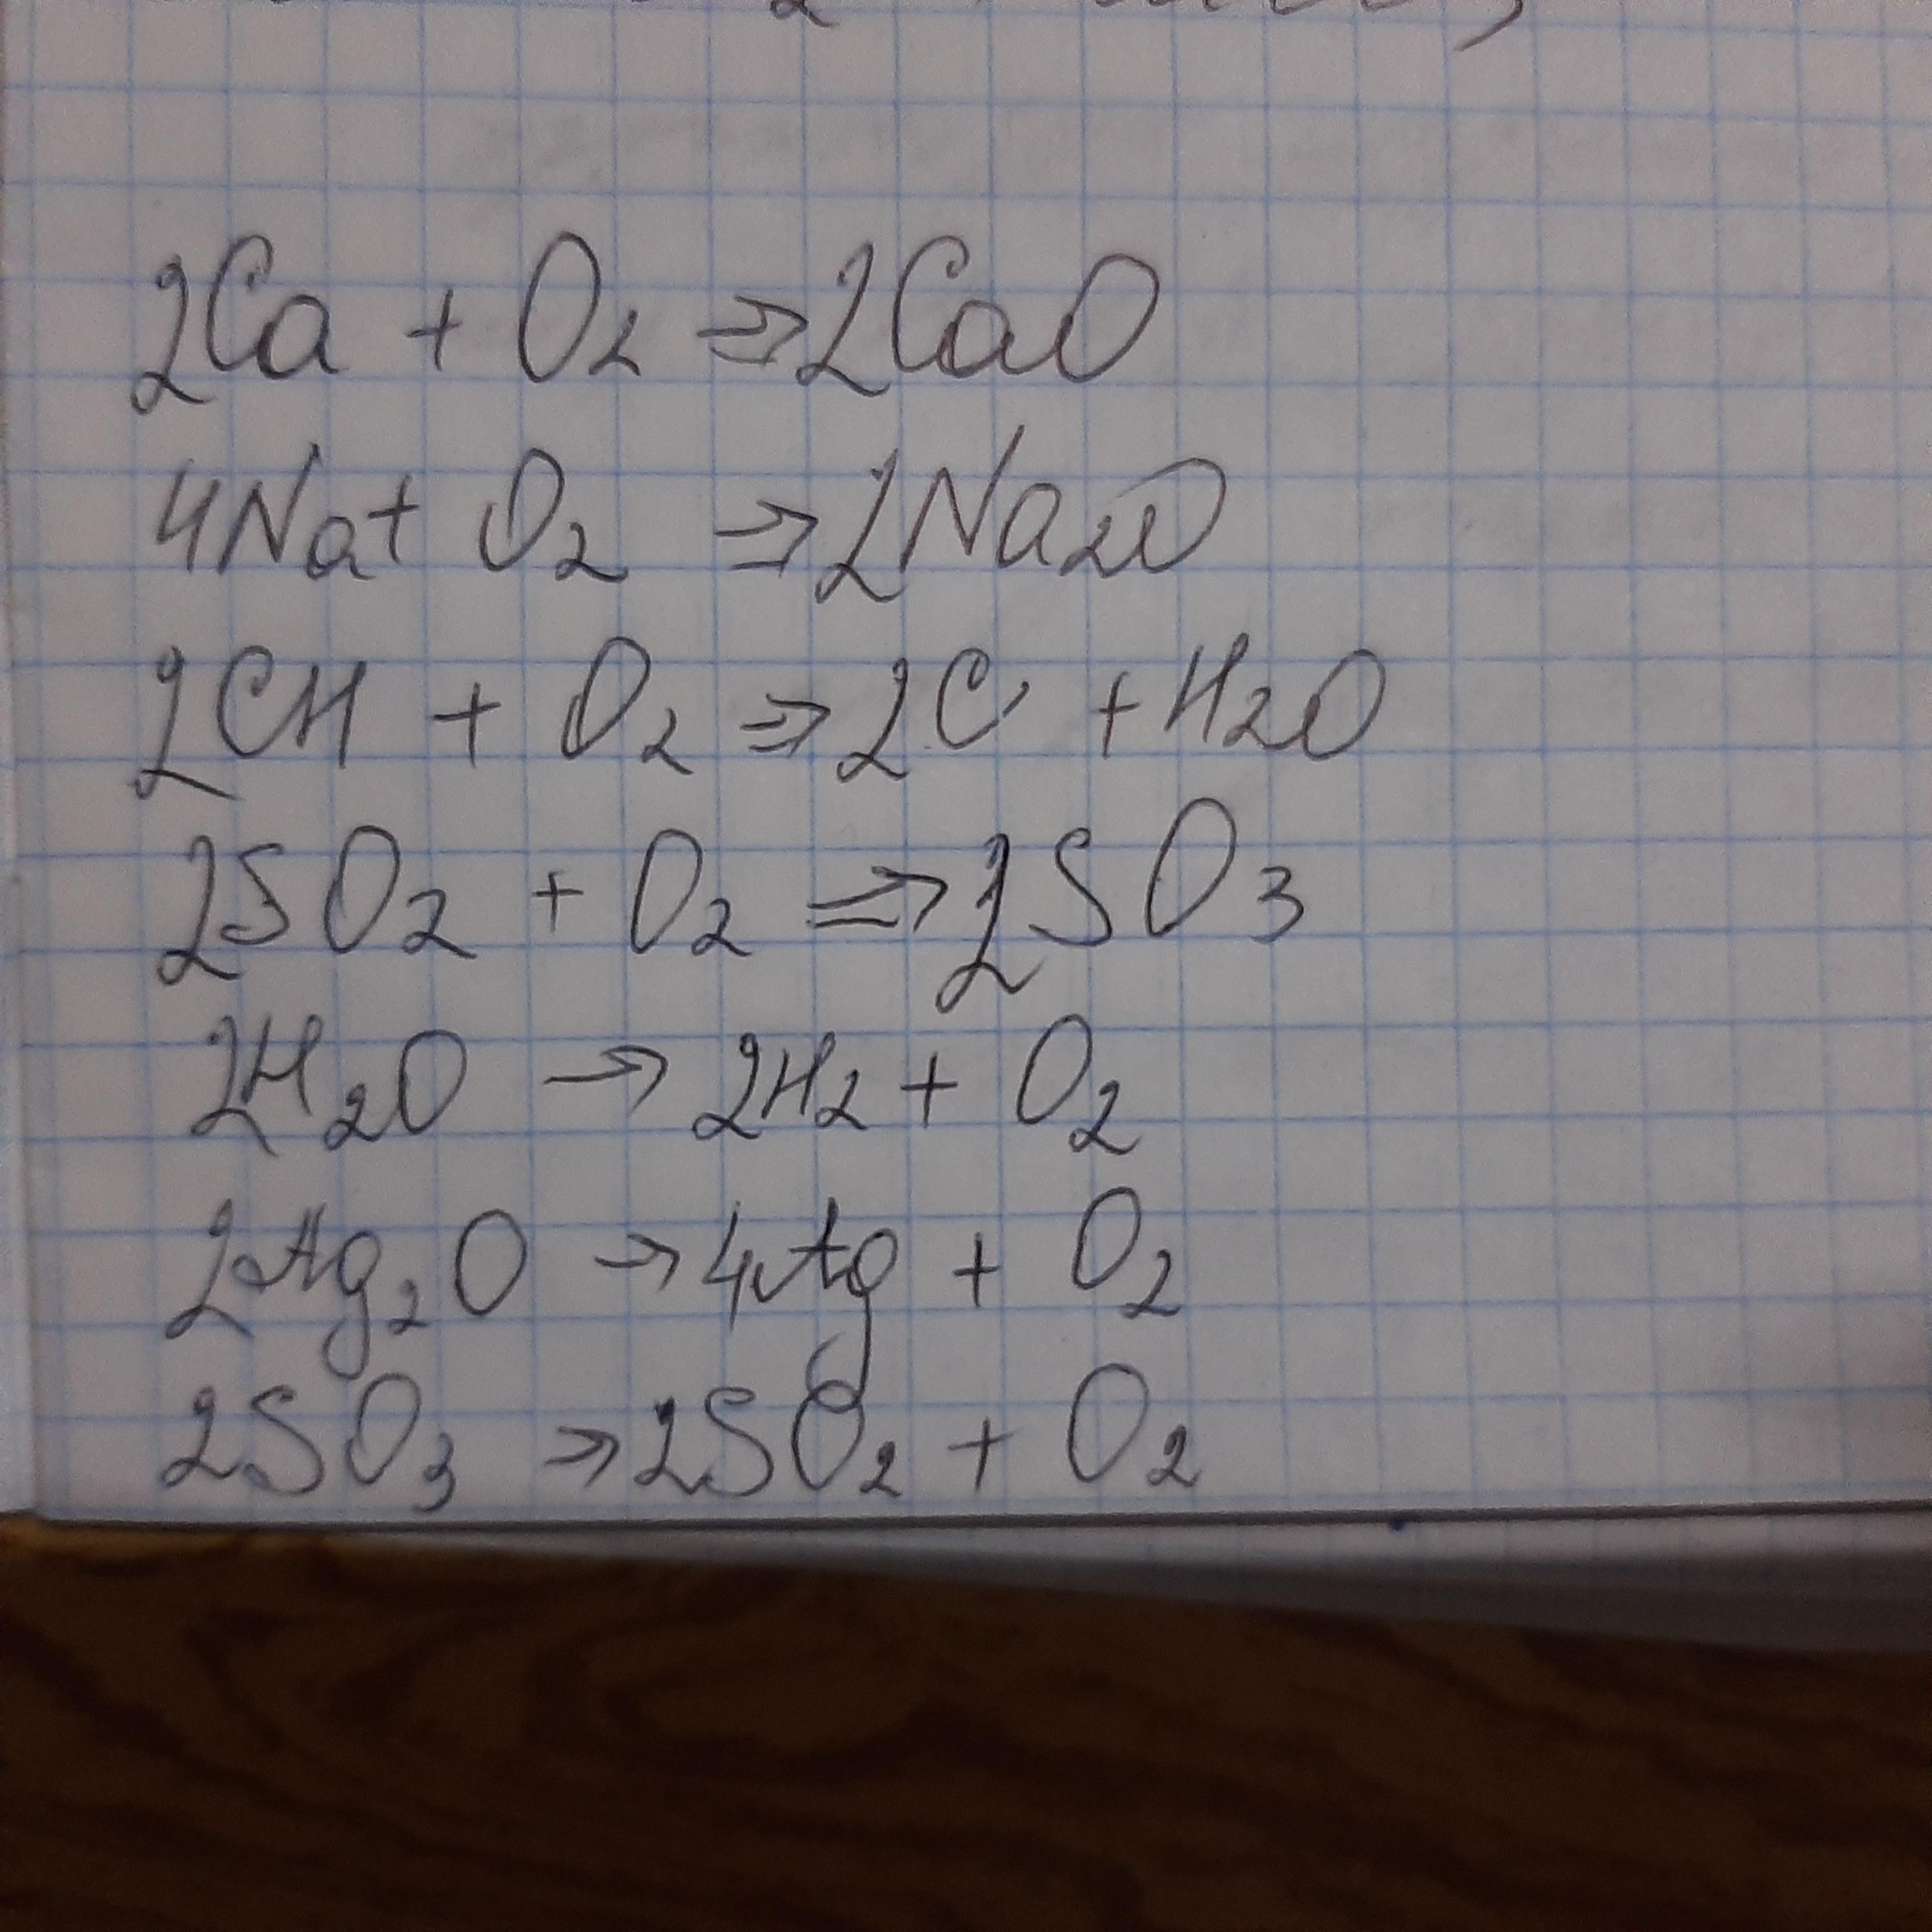 2Ca + O2 ⇒ 2CaO
4Na + O2 ⇒ 2Na2O
2CH + O2 ⇒ 2C + H2O
2SO2 + O2 ⇒ 2SO3
2H2O → 2H2 + O2
2Ag2O → 4Ag + O2
2SO3 → 2SO2 + O2